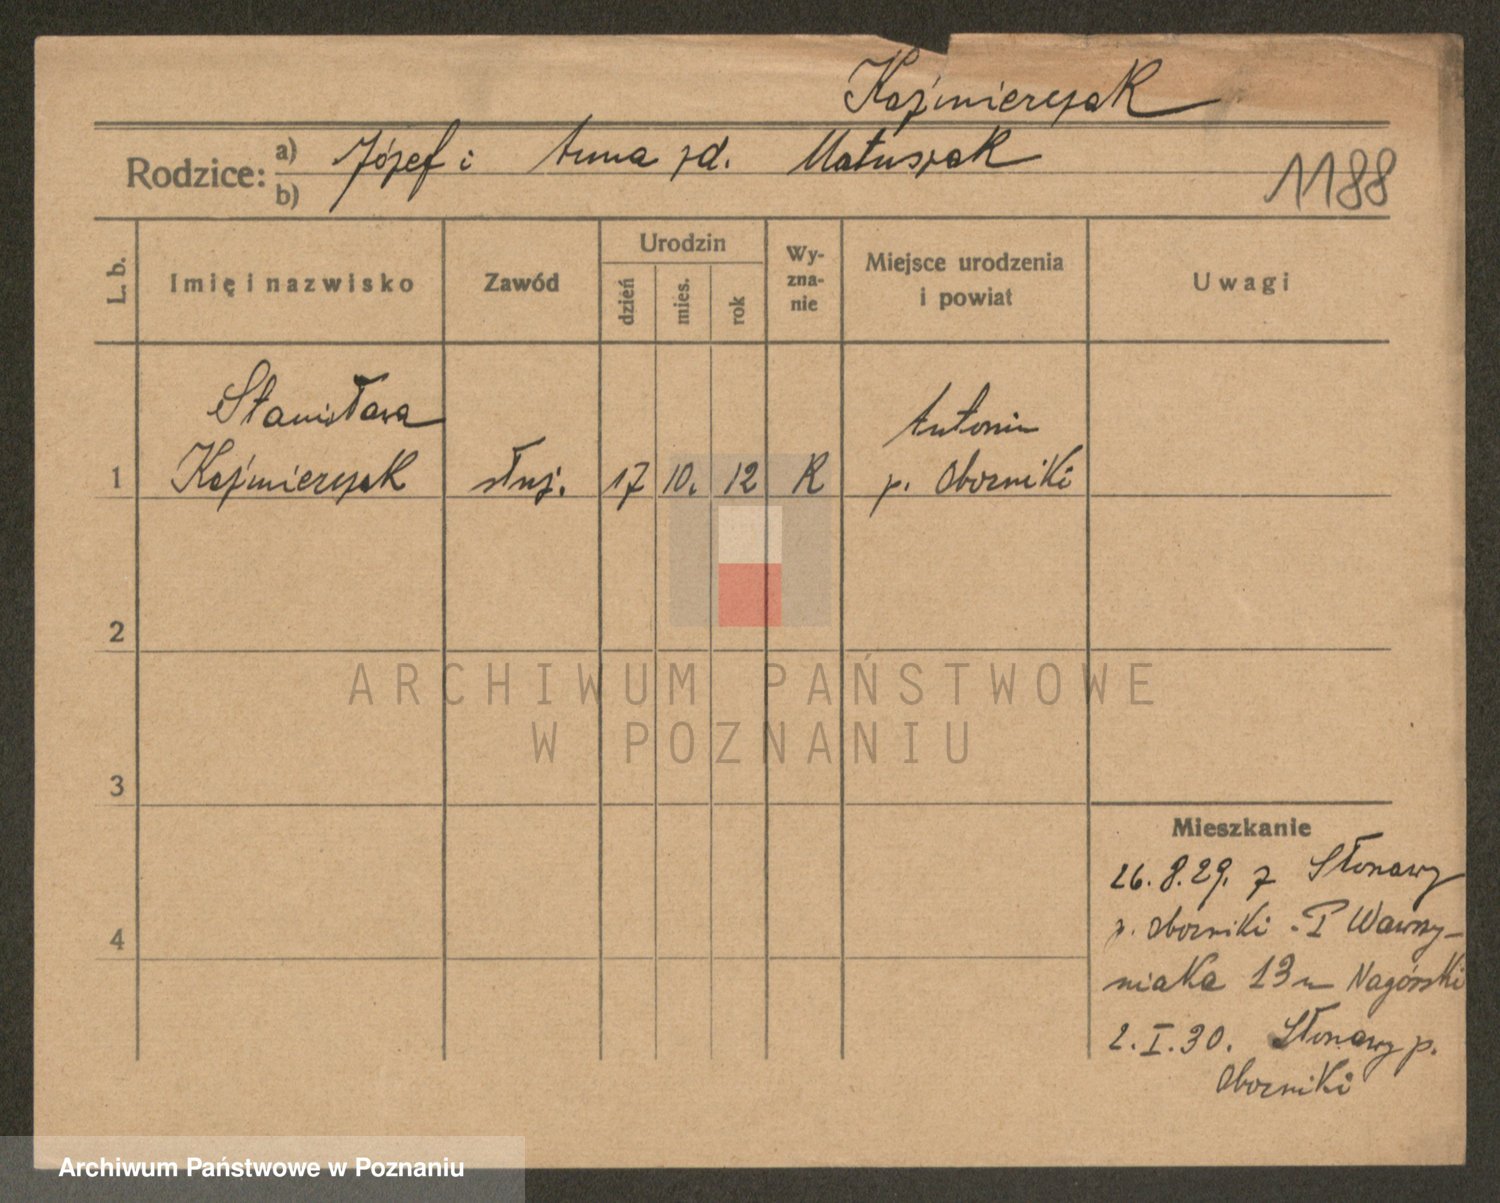 Kaźmierczak
Rodzice: a) b) Józef i Anna zd. Matuszak
1188
L. b. Imię i nazwisko Zawód Urodzin dzień mies. rok Wyzna-nie Miejsce urodzenia i powiat Uwagi
Stanisława Antonin
1 Kaźmierczak służ. 17 10. 12 R p. Oborniki
2
ARCHIWUM PAŃSTWOWE
W POZNANIU
3
Mieszkanie
26.8.29. z Słonawy
p. Oborniki - P Wawrzy-
4
niaka 13 u Nagórski
2.I.30. Słonawy p.
Oborniki
Archiwum Państwowe w Poznaniu